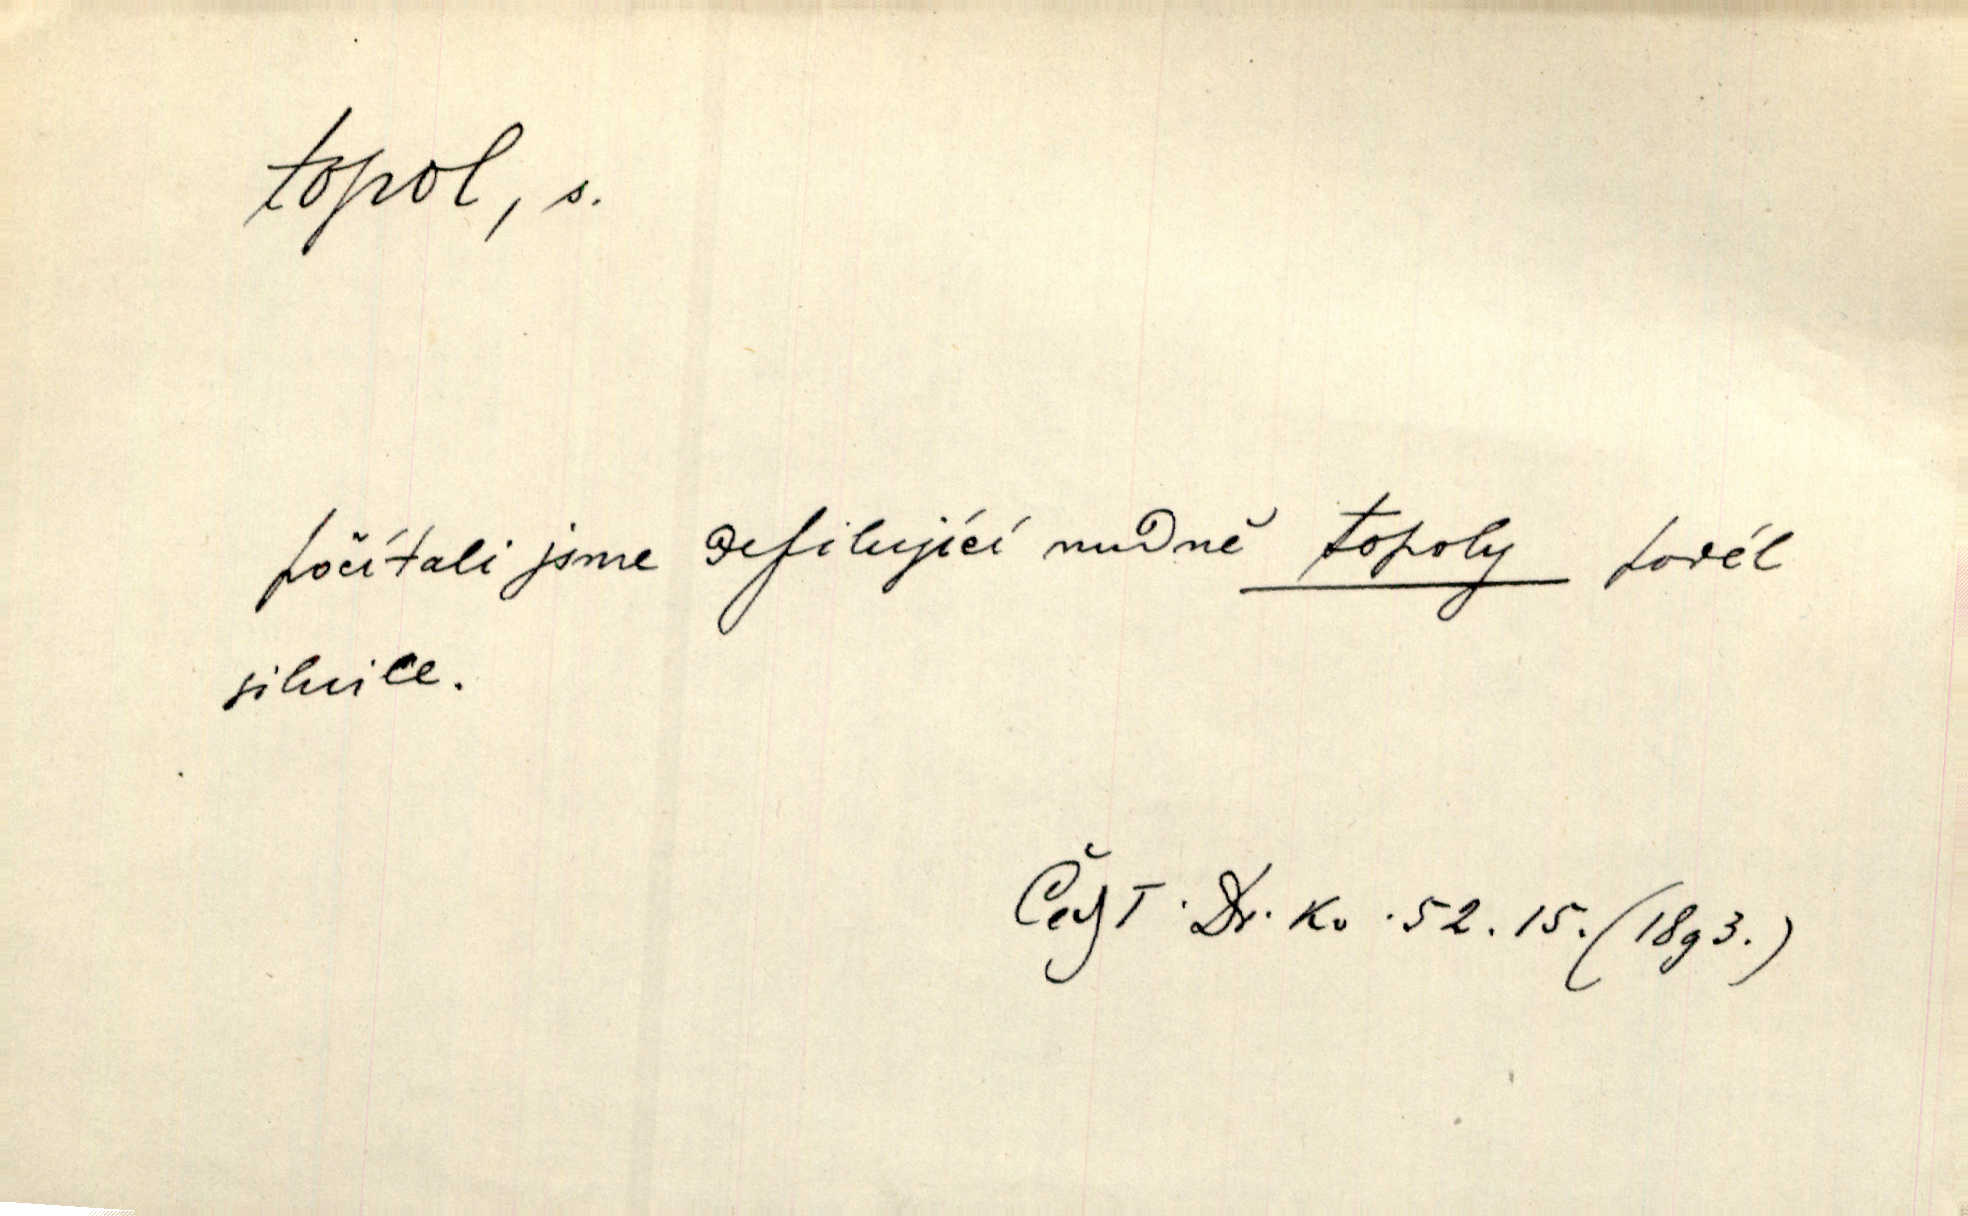 topol, s.
počítali jsme defilující nudně topoly podél
silnice.
Čech T. Dr. Kv. 52. 15. (1893.)